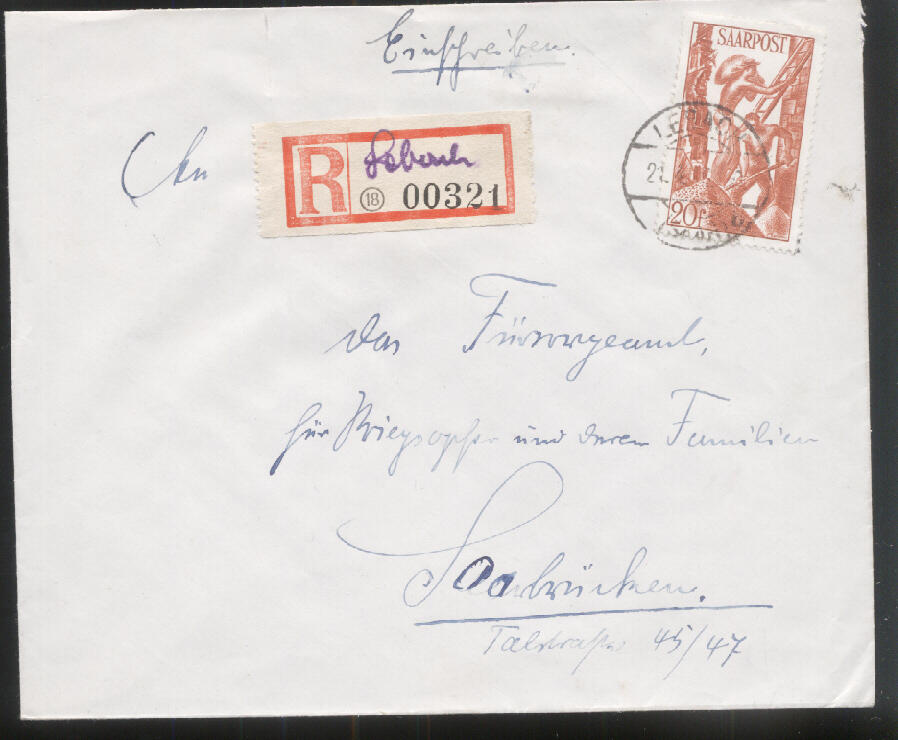 Einschreiben.
SAARPOST
An
R Lebach
18 00321
LEBACH
21.
(SAAR)
20f
das Fürsorgeamt,
für Kriegsopfer und deren Familien
Saarbrücken.
Talstraße 45/47